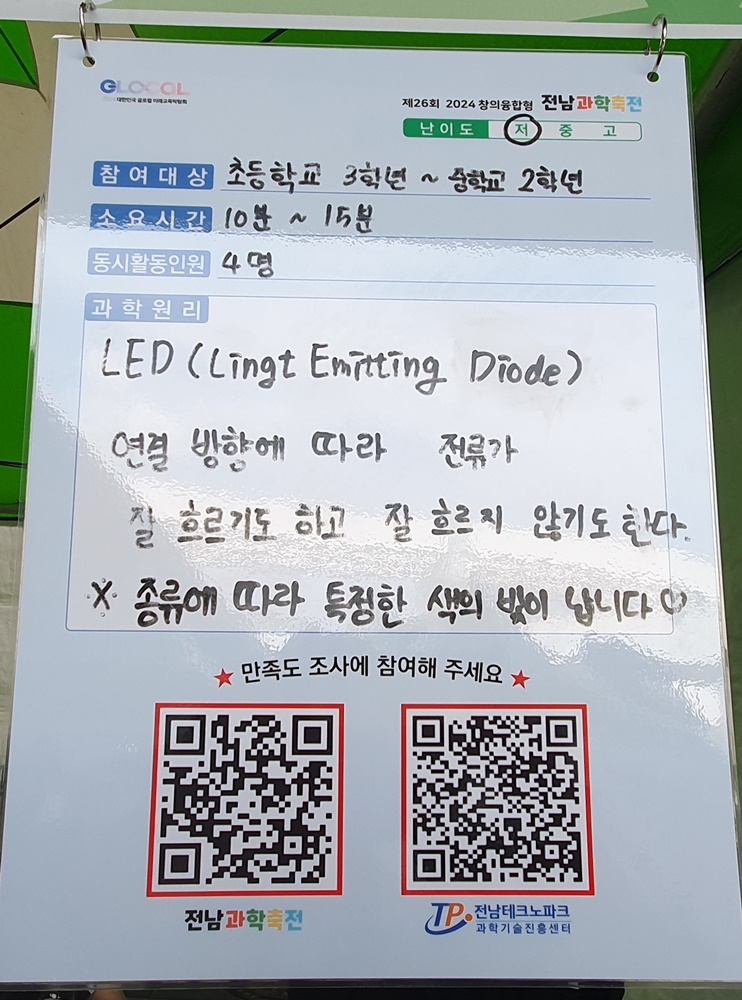 GLOCAL
대한민국 글로컬 미래교육박람회
제26회 2024 창의융합형 전남과학축전
난이도 저 중 고
참여대상 초등학교 3학년 ~ 중학교 2학년
소요시간 10분 ~ 15분
동시활동인원 4명
과학원리
LED (Lingt Emitting Diode)
연결 방향에 따라 전류가
잘 흐르기도 하고 잘 흐르지 않기도 한다.
※ 종류에 따라 특정한 색의 빛이 납니다♡
★ 만족도 조사에 참여해 주세요 ★
전남과학축전
TP 전남테크노파크
과학기술진흥센터